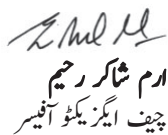 ارم شاکر رحیم
چیف ایگزیکٹو آفیسر